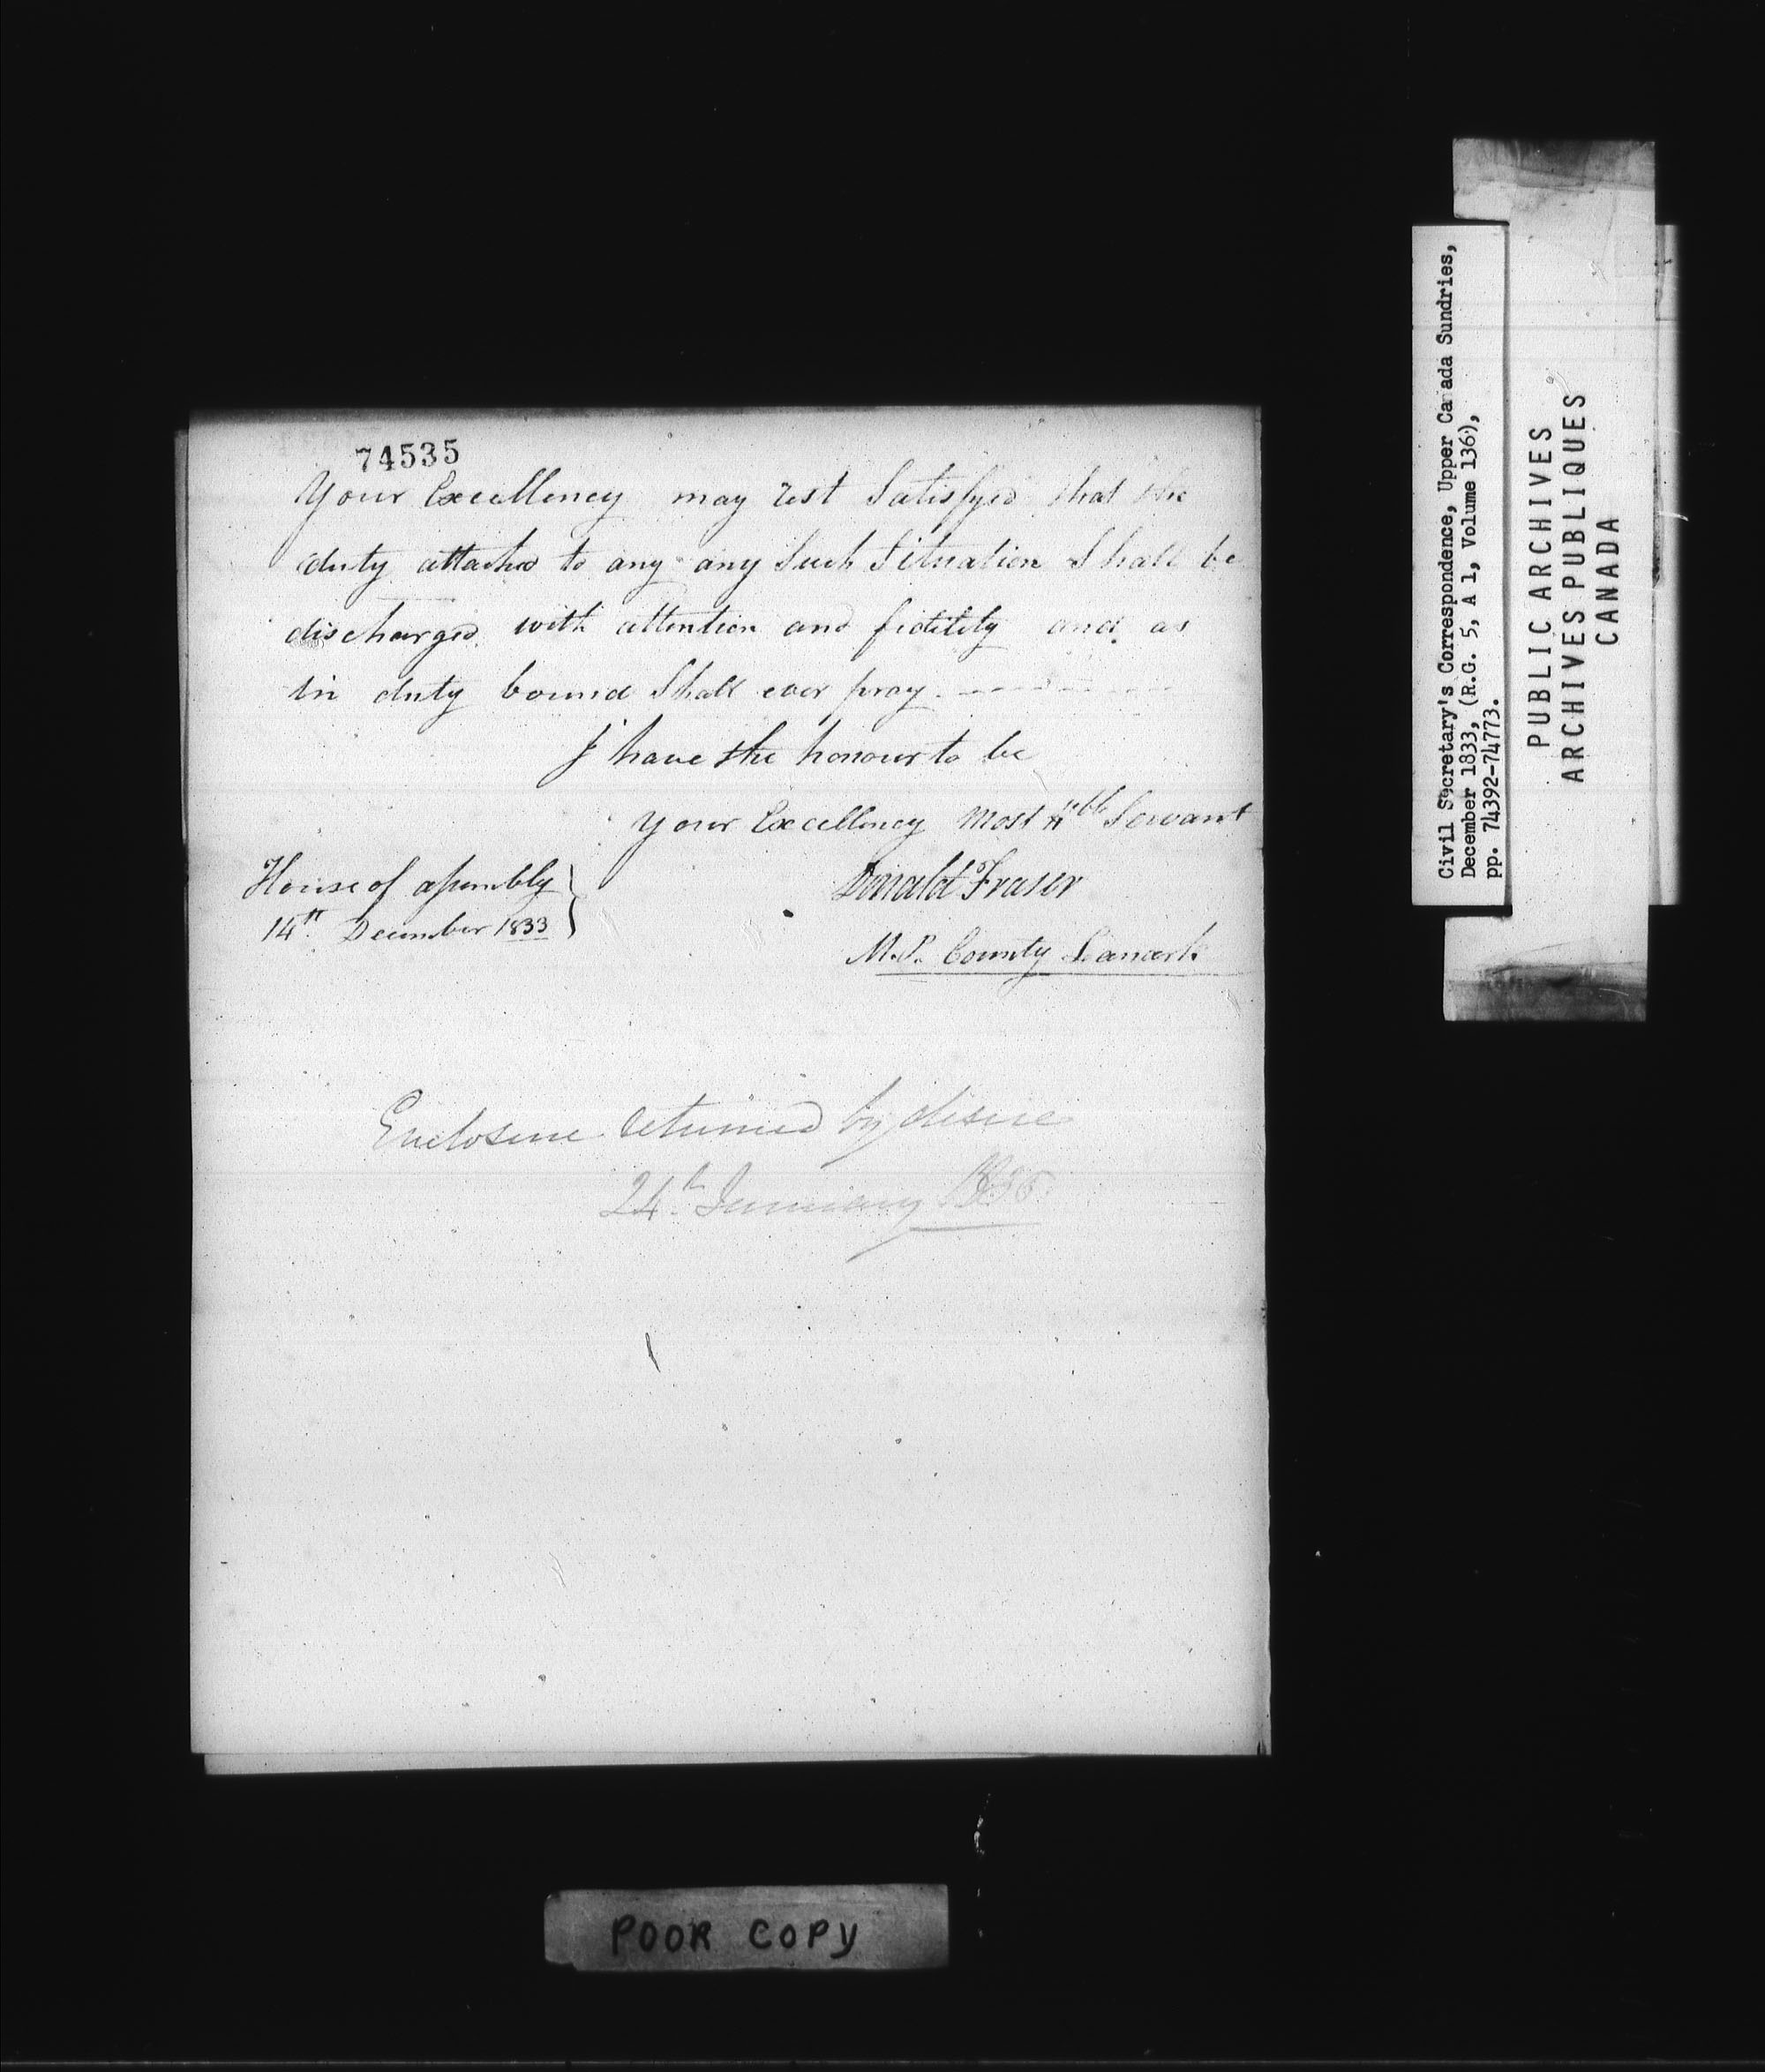 74535
Your Excellency may rest Satisfyed that the
duty attached to any any Such Situation Shall be
discharged with attention and fidelity and as
in duty bound Shall ever pray
I have the honour to be
Your Excellency Most Hble Servant
House of assembly
14th December 1833
Donald Fraser
M.P. County Lanark
Enclosure returned by desire
24th January
POOR COPY
Civil Secretary's Correspondence, Upper Canada Sundries,
December 1833, (R.G. 5, A 1, Volume 136),
pp. 74392-74773.
PUBLIC ARCHIVES
ARCHIVES PUBLIQUES
CANADA